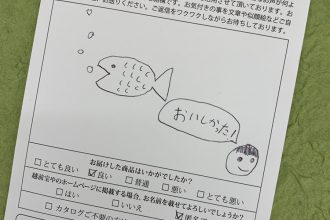 用させて頂いております。お
お送りください。お気付きの事を文章や似顔絵などご自
す。ご返信をワクワクしながらお待ちしております。
おいしかった!
お届けした商品はいかがでしたか?
□とても良い ☑良い □普通 □悪い □とても悪い
越前宝やのホームページに掲載する場合、お名前を載せてよろしいでしょうか?
□はい □いいえ ☑匿名
□カタログご不要の